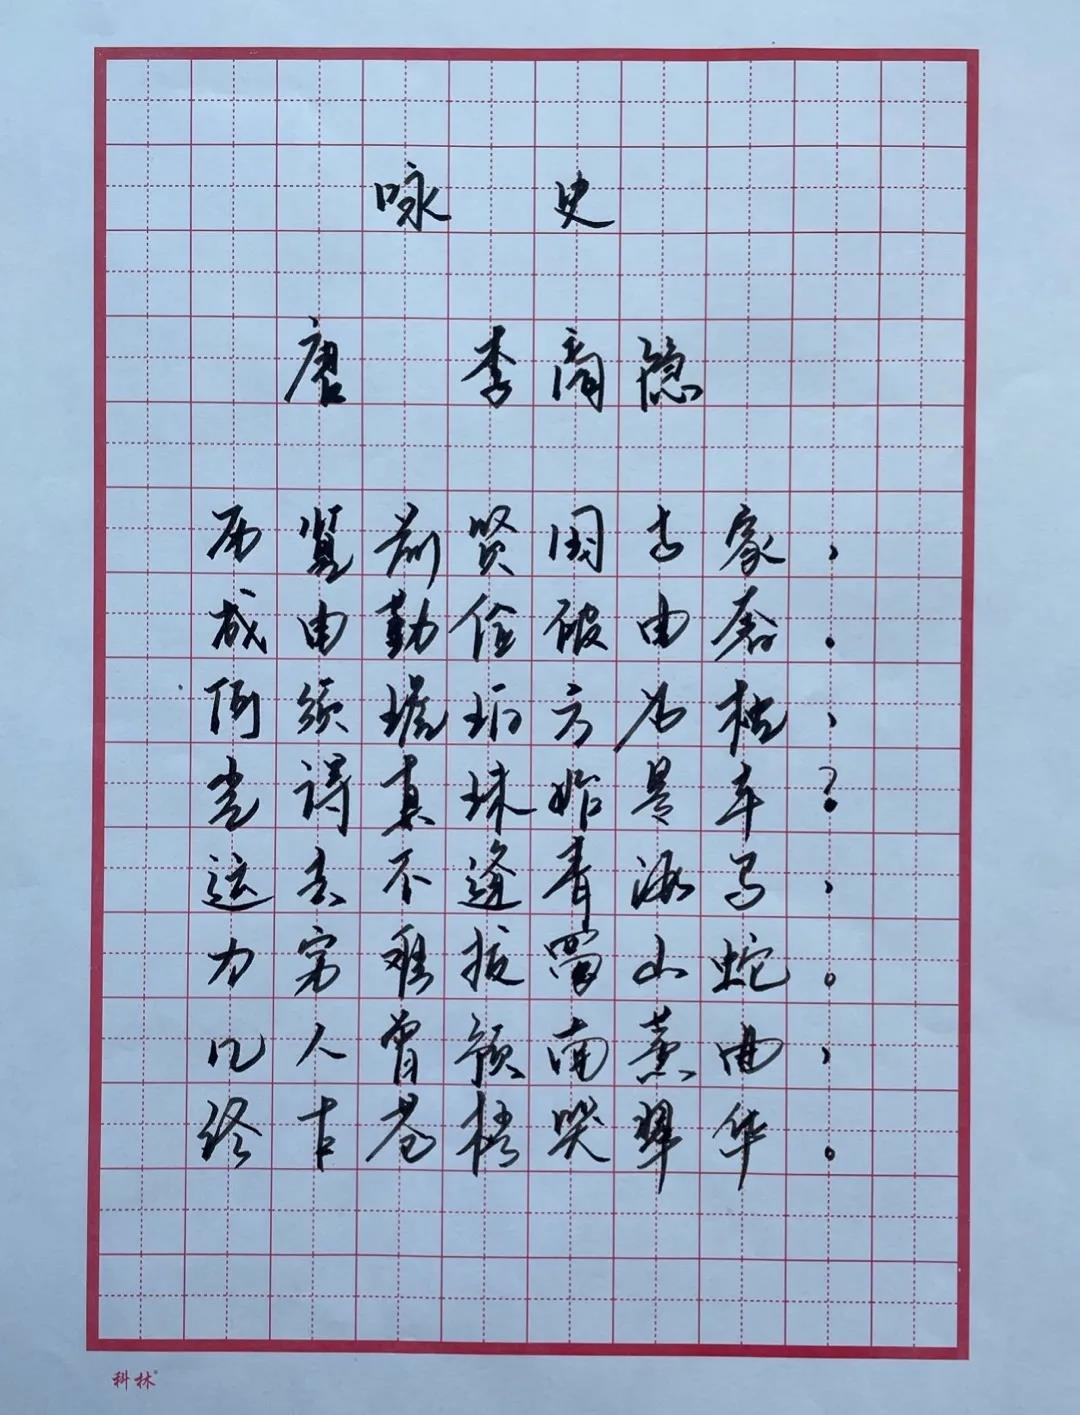 咏史
唐 李商隐
历览前贤国与家，
成由勤俭破由奢。
何须琥珀方为枕，
岂得真珠始是车？
运去不逢青海马，
力穷难拔蜀山蛇。
几人曾预南薰曲，
终古苍梧哭翠华。
科林